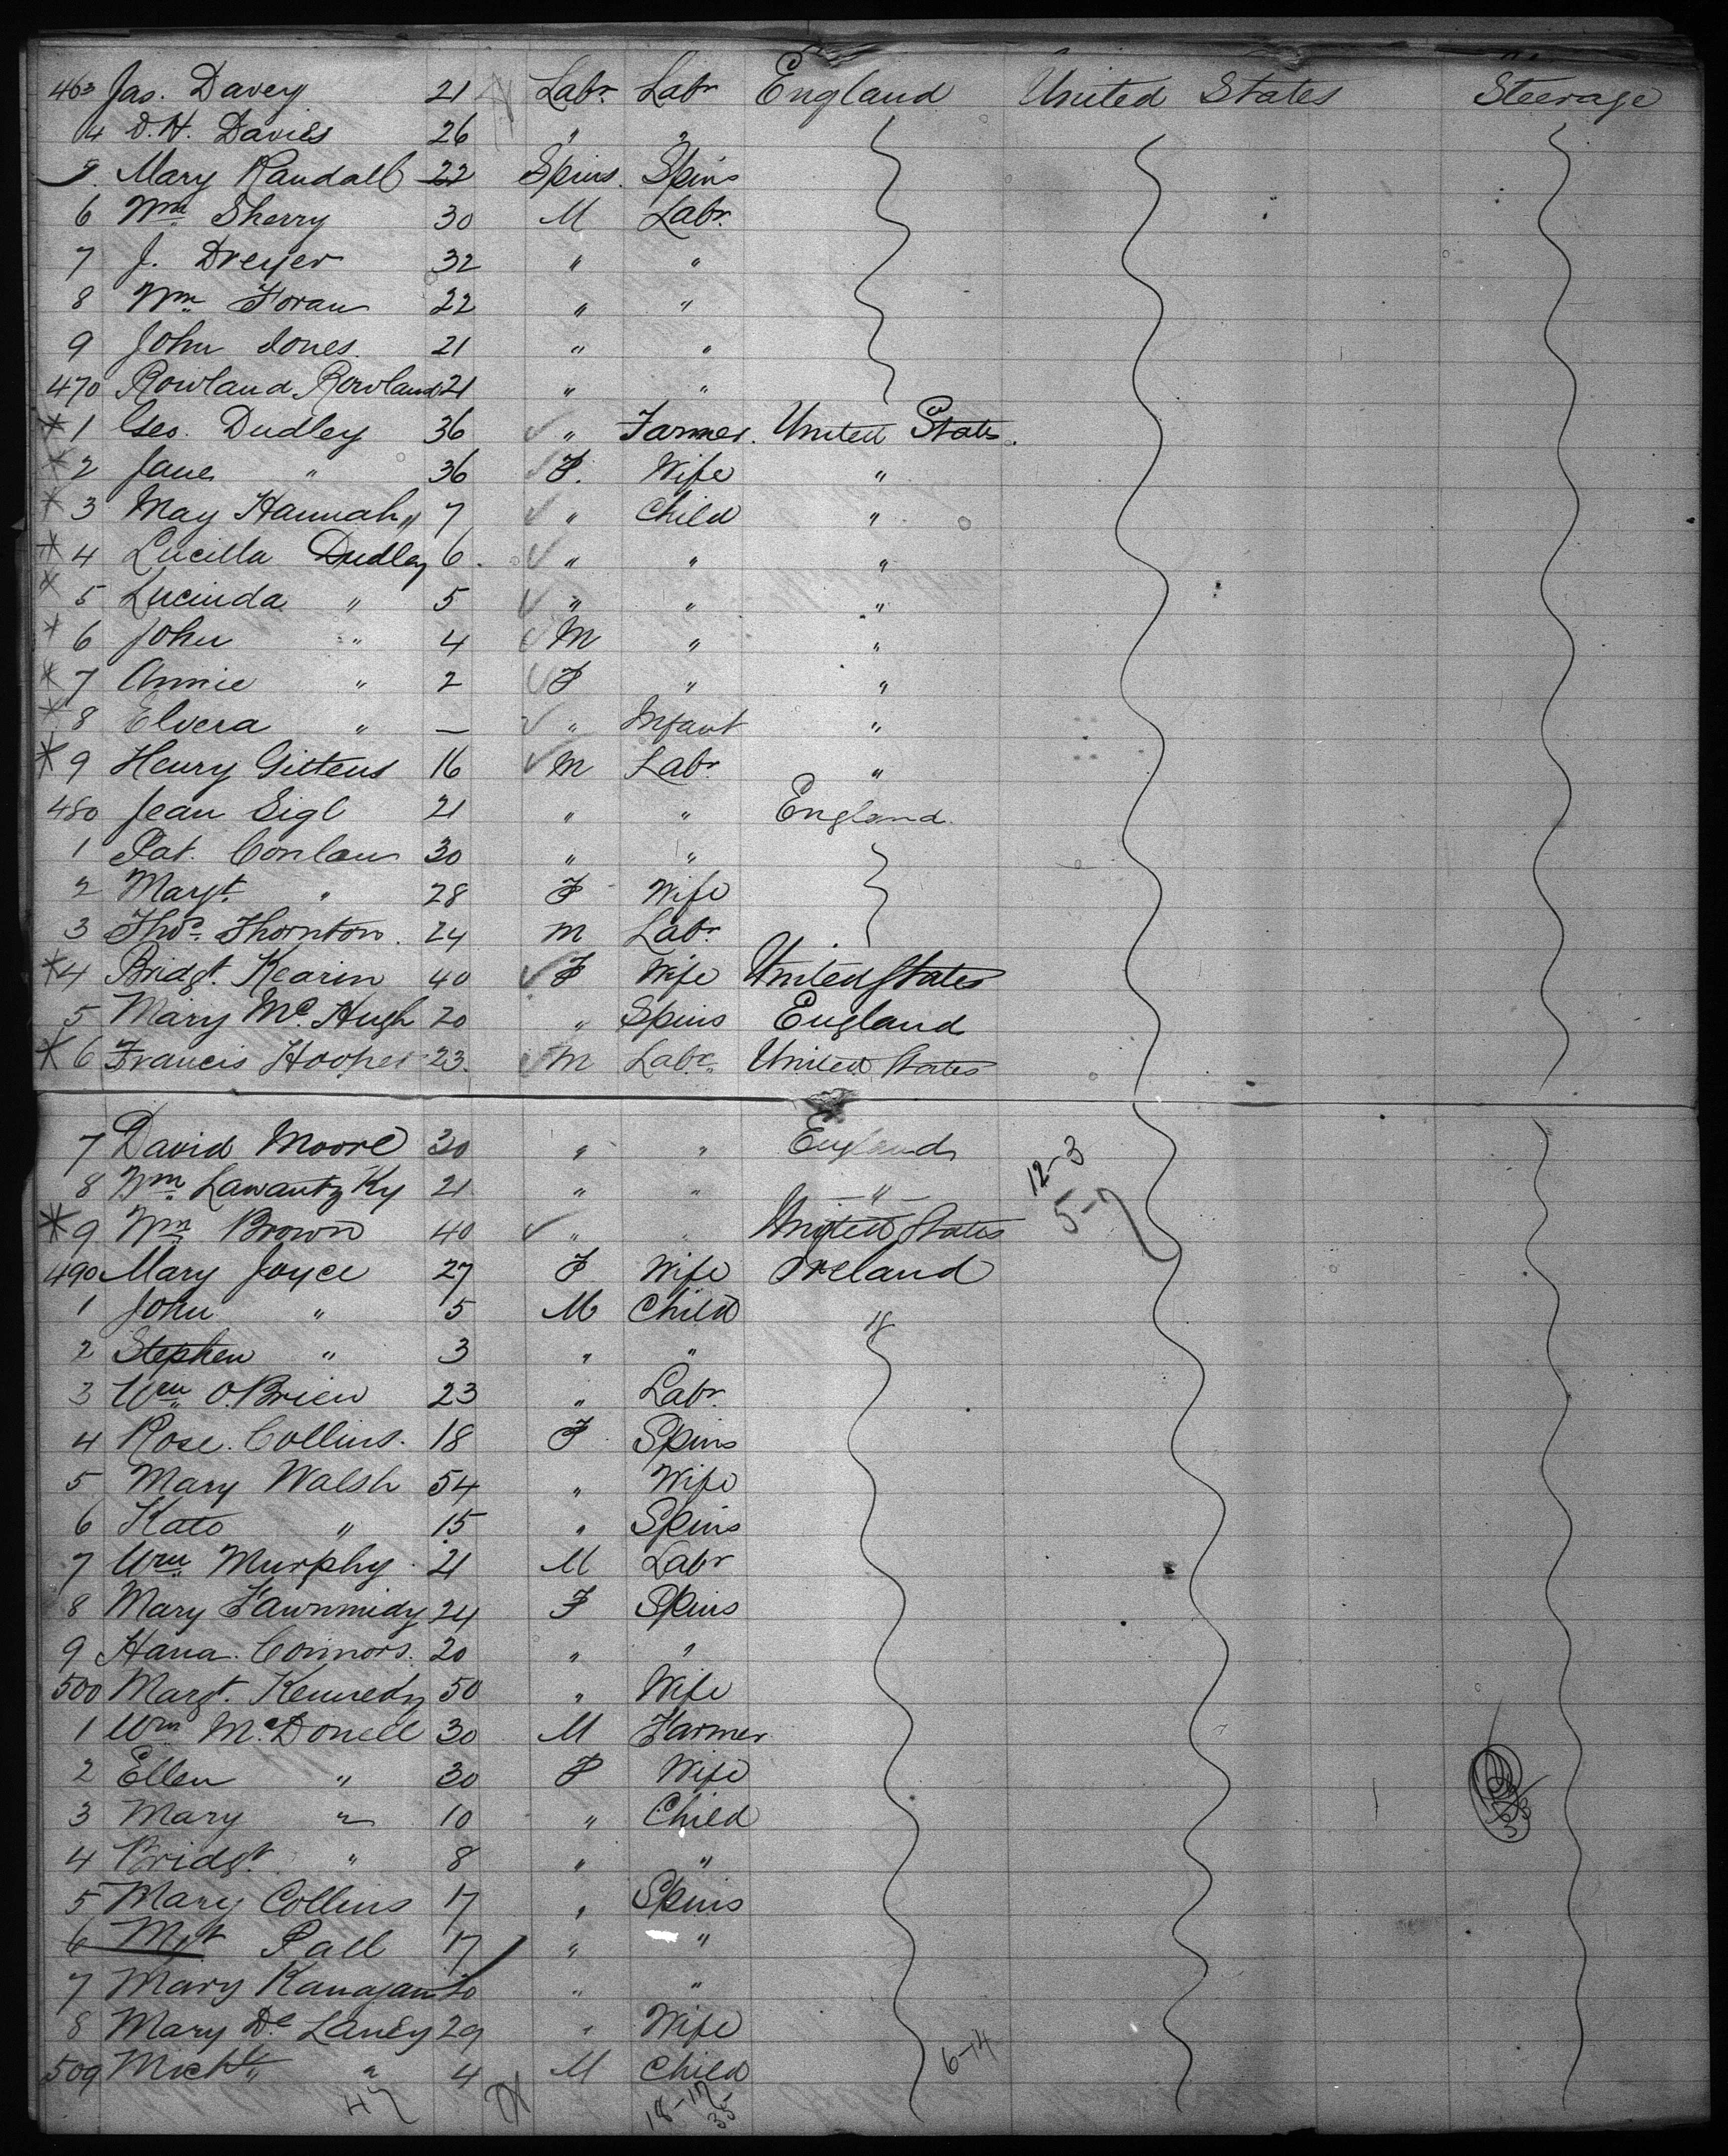 463 Jas. Davey 21 Labr. Labr England United States Steerage
4 D. H. Davies 26 " "
5 Mary Randall 22 Spins. Spins
6 Wm Sherry 30 M Labr.
7 J. Dreyer 32 " "
8 Wm Foran 22 " "
9 John Jones. 21 " "
470 Rowland Rowland 21 " "
* 1 Geo. Dudley 36 ✓ " Farmer. United States.
* 2 Jane " 36 ✓ F. Wife "
* 3 May Hannah " 7 ✓ " Child "
* 4 Lucilla Dudley 6. ✓ " " "
* 5 Lucinda " 5 ✓ " " "
* 6 John " 4 ✓ M " "
* 7 Annie " 2 ✓ F " "
* 8 Elvera " — ✓ " Infant "
* 9 Henry Gittens 16 ✓ M Labr. "
480 Jean Sigl 21 " " England.
1 Pat. Conlan 30 " "
2 Margt. " 28 F Wife
3 Thos. Thornton. 24 M Labr.
* 4 Bridgt. Kearin 40 ✓ F Wife United States
5 Mary Mc. Hugh 20 " Spins England
* 6 Francis Hooper 23. ✓ M Labr. United States
7 David Moore 30 " " England 12-3
8 Wm Lawantzky 21 " " — " — 5-7
* 9 Wm Brown 40 ✓ " " United States
490 Mary Joyce 27 F Wife Ireland
1 John " 5 M Child 18
2 Stephen " 3 " "
3 Wm O.Brien 23 " Labr.
4 Rose. Collins. 18 F Spins
5 Mary Walsh 54 " Wife
6 Kate " 15 " Spins
7 Wm Murphy 21 M Labr
8 Mary 24 F Spins
9 Hana. Connors. 20 " "
500 Margt. Kennedy 50 " Wife
1 Wm Mc.Donell 30 M Farmer
2 Ellen " 30 F Wife
3 Mary " 10 " Child
4 Bridgt. " 8 " "
5 Mary Collins 17 " Spins
6 Mgt Pall 17 " "
7 Mary 20 " "
8 Mary De Laney 29 " Wife
509 Michl. " 4 M Child 6-14
47 18-17
35